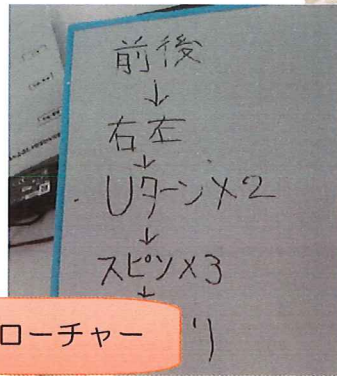 前後
↓
右左
↓
Uターン×2
↓
スピン×3
↓
り
ローチャー